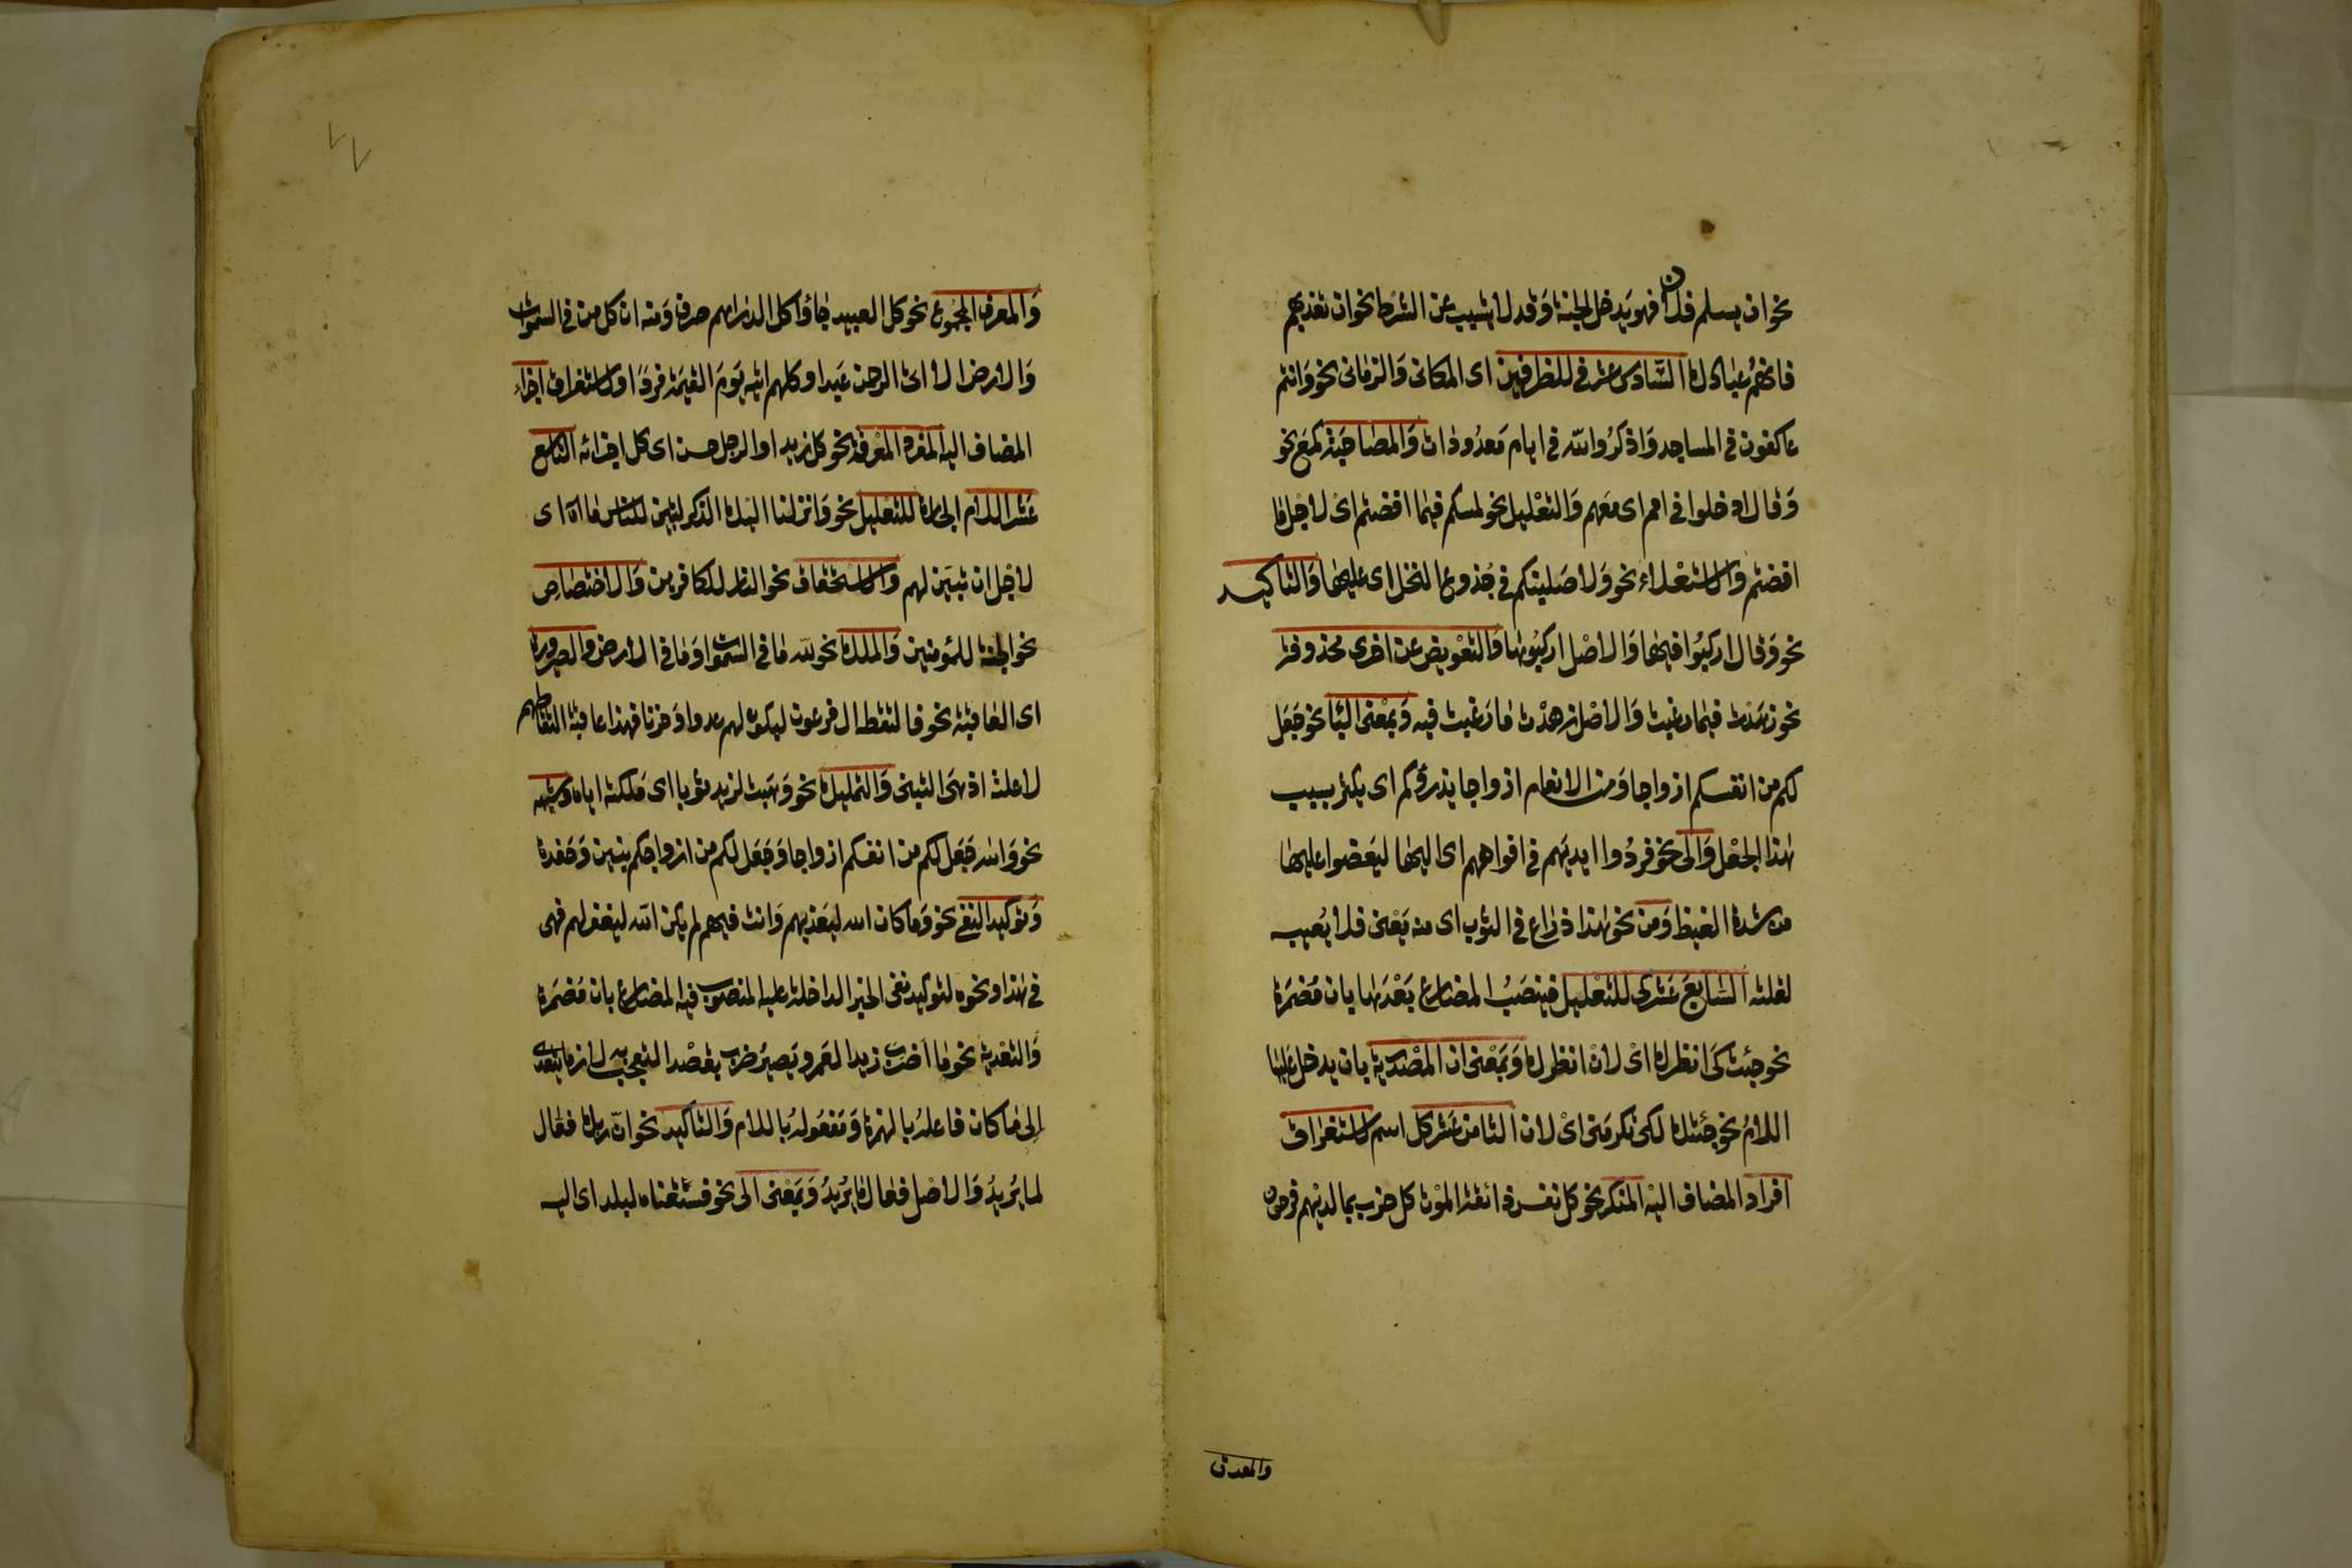 نحو ان يسلم فلان فهو يدخل الجنة وقد لا يتسبب عن الشرط نحو ان تعذبهم
فانهم عبادك السادس عشر في للظرفين اى المكانى والزمانى نحو وانتم
عاكفون في المساجد واذكروا الله في ايام معدودات والمصاحبة كمع نحو
وقال ادخلوا في امم اى معهم والتعليل نحو لمسكم فيما افضتم اى لاجل ما
افضتم والاستعلاء نحو ولاصلبنكم في جذوع النخل اى عليها والتاكيد
نحو وقال اركبوا فيها والاصل اركبوها والتعويض عن اخرى محذوفة
نحو زهدت فيما رغبت والاصل زهدت ما رغبت فيه وبمعنى البا نحو جعل
لكم من انفسكم ازواجا ومن الانعام ازواجا يذرؤكم اى يكثر بسبب
هذا الجعل والى نحو فردوا ايديهم في افواههم اى اليها ليعضوا عليها
من شدة الغيظ ومن نحو هذا ذراع في الثوب اى منه يعنى فلا يعيبه
لقلته السابع عشر كى للتعليل فينصب المضارع بعدها بان مضمرة
نحو جئت كى انظرك اى لان انظرك وبمعنى ان المصدرية بان يدخل عليها
اللام نحو جئتك لكى تكرمنى اى لان الثامن عشر كل اسم لاستغراق
افراد المضاف اليه المنكر نحو كل نفس ذائقة الموت كل حزب بما لديهم فرحون
والمعرف
والمعرف المجموع نحو كل العبيد جاؤا كل الدراهم صرف ومنه ان كل من في السموات
والارض الا اتى الرحمن عبدا وكلهم اتيه يوم القيمة فردا او لاستغراق اجزاء
المضاف اليه المفرد المعرفة نحو كل زيد او الرجل حسن اى كل اجزائه التاسع
عشر اللام الجارة للتعليل نحو وانزلنا اليك الذكر لتبين للناس ما اه اى
لاجل ان تبين لهم والاستحقاق نحو النار للكافرين والاختصاص
نحو الجنة للمؤمنين والملك نحو لله ما في السموات وما في الارض والصيرورة
اى العاقبة نحو فالتقطه ال فرعون ليكون لهم عدوا وحزنا فهذا عاقبة التقاطهم
لا علته اذ هى التبنى والتمليك نحو وهبت لزيد ثوبا اى ملكته اياه وشبهه
نحو والله جعل لكم من انفسكم ازواجا وجعل لكم من ازواجكم بنين وحفدة
وتوكيد النفى نحو وما كان الله ليعذبهم وانت فيهم لم يكن الله ليغفر لهم فهى
في هذا ونحوه لتوكيد نفى الخبر الداخلة عليه المنصوب فيه المضارع بان مضمرة
والتعدية نحو ما اضرب زيدا لعمرو يصير ضرب بقصد التعجب به لازما يتعدى
الى ما كان فاعله بالهمزة ومفعوله باللام والتاكيد نحو ان ربك فعال
لما يريد والاصل فعال ما يريد وبمعنى الى نحو فسقناه لبلد اى اليه